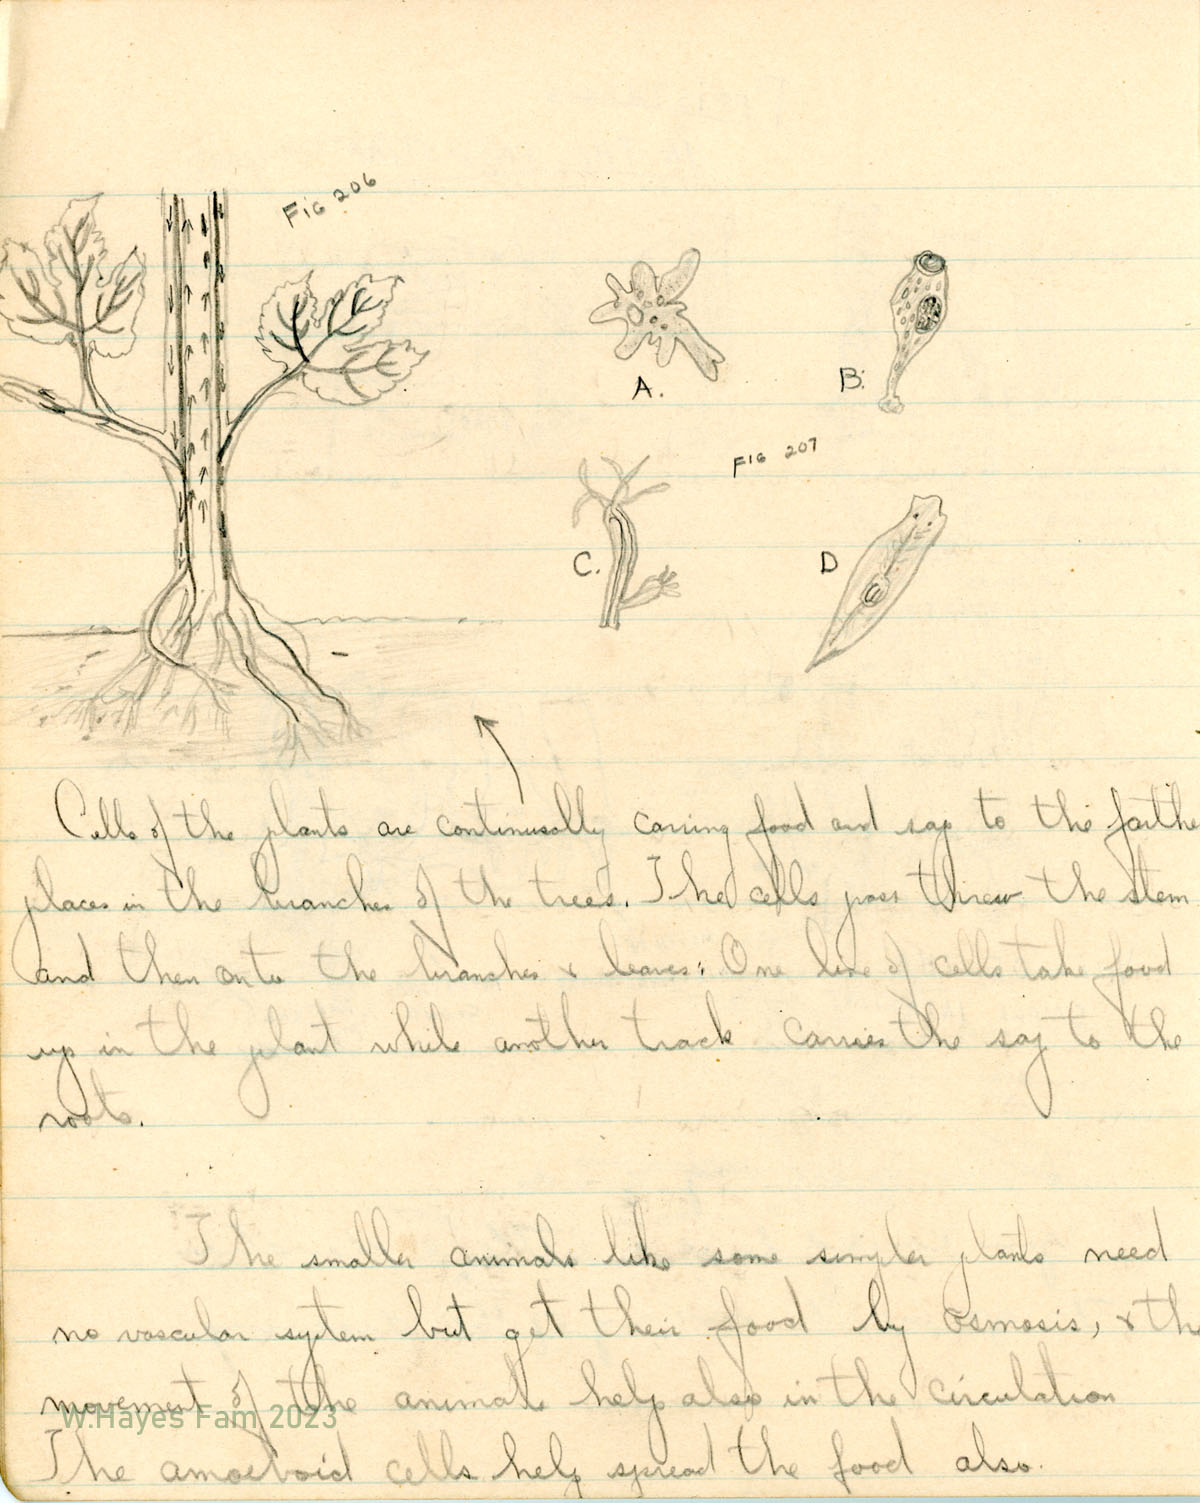 FIG 206
A.
B.
FIG 207
C.
D
Cells of the plants are continusally carring food and sap to the farthe
places in the branches of the trees. The cells pass threw the stem
and then onto the branches & leaves: One line of cells take food
up in the plant while another track carries the sap to the
roots.
The smaller animals like some simpler plants need
no vascular system but get their food by osmosis, & the
movement of the animals help also in the circulation
W.Hayes Fam 2023
The amoeboid cells help spread the food also.